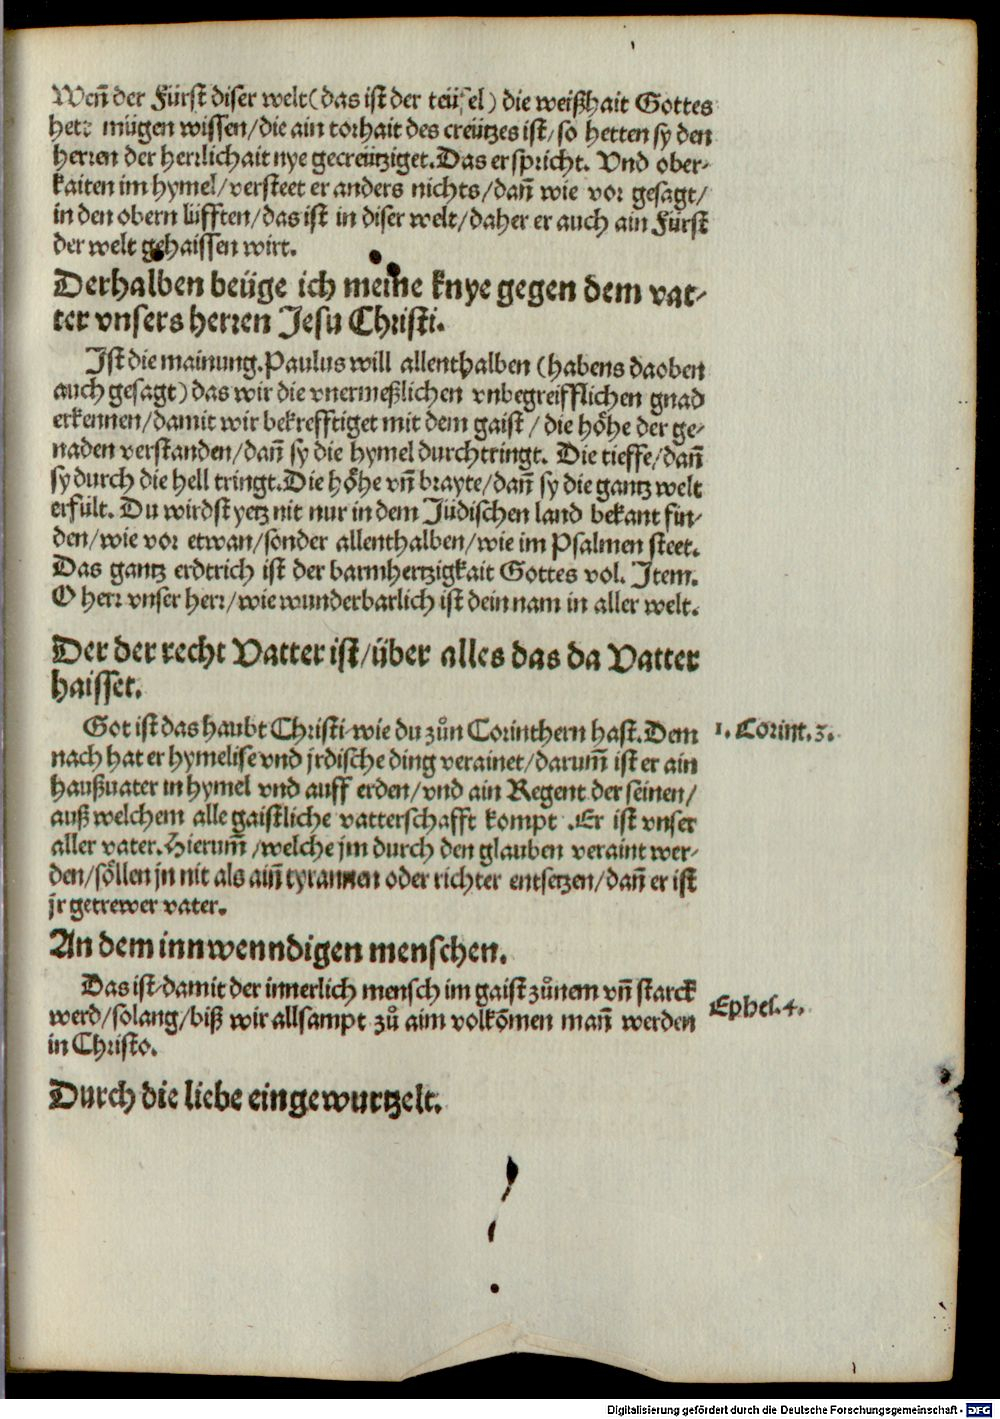 Weñ der Fürst diser welt (das ist der teüfel) die weißhait Gottes
hett mügen wissen/die ain torhait des creützes ist/so hetten sy den
herren der herrlichait nye gecreütziget. Das er spricht. Vnd ober-
kaiten im hymel/versteet er anders nichts/dañ wie vor gesagt/
in den obern lüfften/das ist in diser welt/daher er auch ain Fürst
der welt gehaissen wirt.
Derhalben beüge ich meine knye gegen dem vat-
ter vnsers herren Jesu Christi.
Jst die mainung. Paulus will allenthalben (habens daoben
auch gesagt) das wir die vnermeßlichen vnbegreifflichen gnad
erkennen/damit wir bekrefftiget mit dem gaist/die höhe der ge-
naden verstanden/dañ sy die hymel durchtringt. Die tieffe/dañ
sy durch die hell tringt. Die höhe vñ brayte/dañ sy die gantz welt
erfült. Du wirdst yetz nit nur in dem Jüdischen land bekant fin-
den/wie vor etwan/sonder allenthalben/wie im Psalmen steet.
Das gantz erdtrich ist der barmhertzigkait Gottes vol. Jtem.
O herr vnser herr/wie wunderbarlich ist dein nam in aller welt.
Der der recht Vatter ist/über alles das da Vatter
haisset.
Got ist das haubt Christi wie du zůn Corinthern hast. Dem
1. Corint. 3.
nach hat er hymelise vnd jrdische ding verainet/darum̃ ist er ain
haußuater in hymel vnd auff erden/vnd ain Regent der seinen/
auß welchem alle gaistliche vatterschafft kompt. Er ist vnser
aller vater. Hierum̃/welche jm durch den glauben veraint wer-
den/söllen jn nit als aiñ tyrannen oder richter entsetzen/dañ er ist
jr getrewer vater.
An dem innwenndigen menschen.
Das ist/damit der innerlich mensch im gaist zůnem vñ starck
Ephes. 4.
werd/solang/biß wir allsampt zů aim volkõmen mañ werden
in Christo.
Durch die liebe eingewurtzelt.
Digitalisierung gefördert durch die Deutsche Forschungsgemeinschaft - DFG